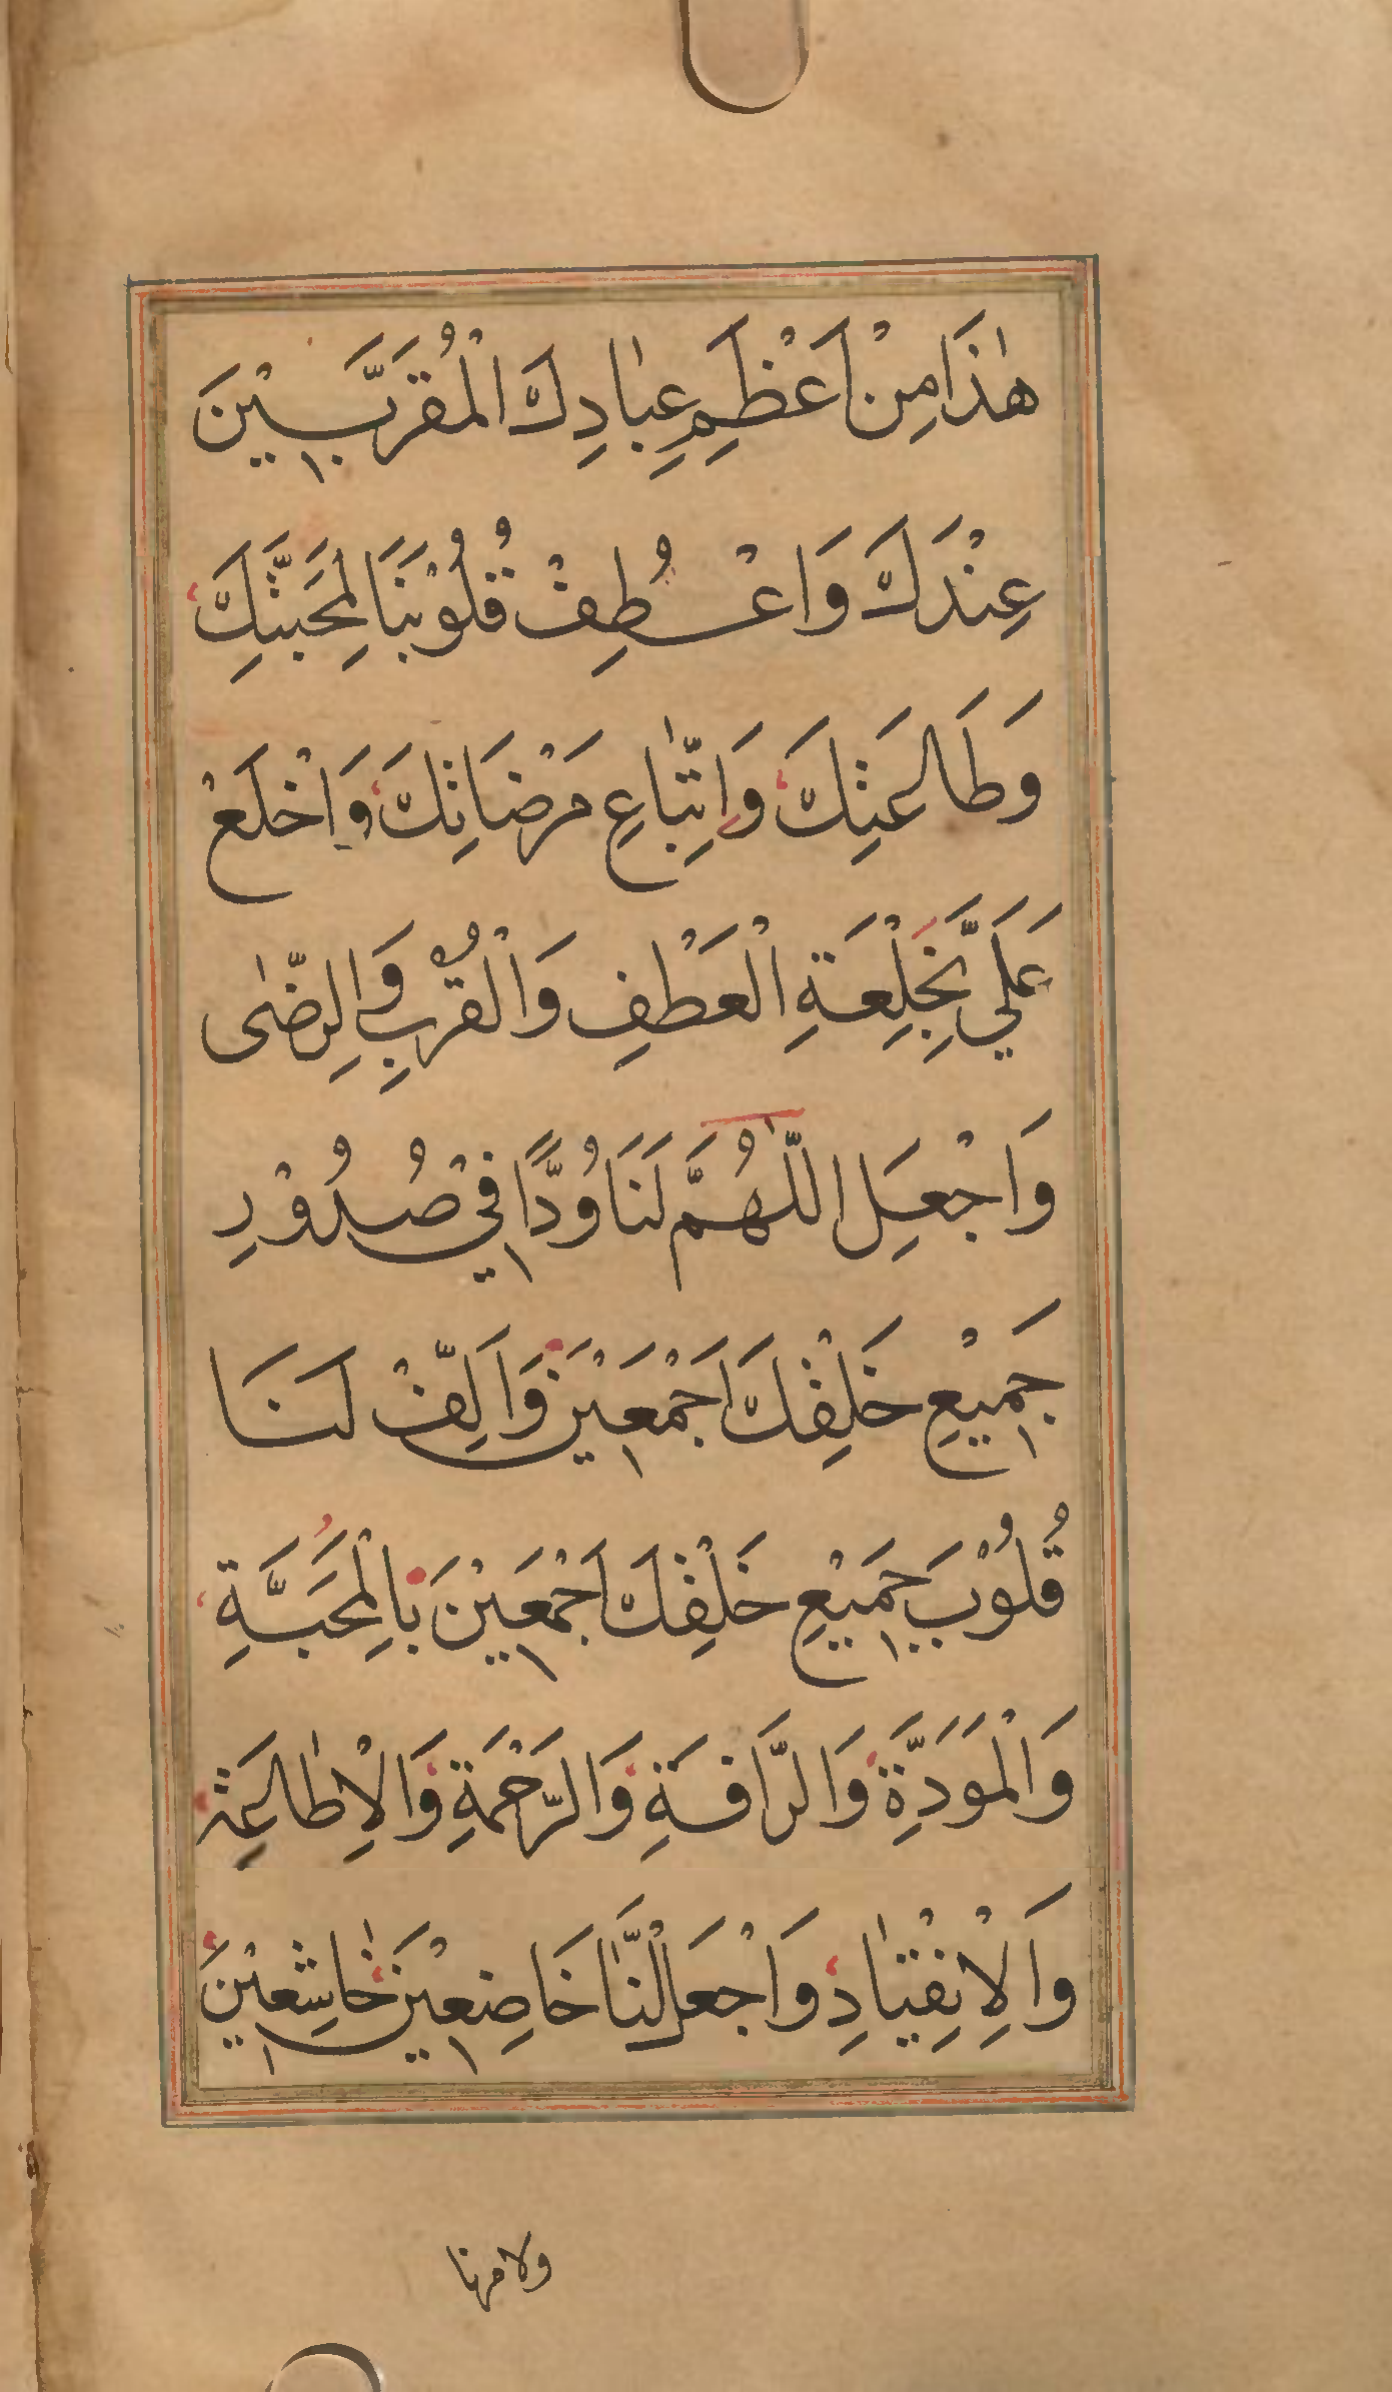 هٰذَا مِنْ اَعْظَمِ عِبٰادِكَ الْمُقَرَّبِيْنَ
عِنْدَكَ وَاعْطُفِ قُلُوْبَنَا لِمَحَبَّتِكَ
وَطَاعَتِكَ وَاِتِّبٰاعِ مَرْضَاتِكَ وَاخْلَعْ
عَلَيَّ بِخَلِعَةِ الْعَطْفِ وَالْقُرْبِ وَالرِضّٰى
وَاجْعَلِ اللّٰهُمَّ لَنَا وُدًّا فِيْ صُدُوْرِ
جَمِيْعِ خَلْقِكَ اَجْمَعِيْنَ وَاَلِّفْ لَنَا
قُلُوْبَ جَمِيْعِ خَلْقِكَ اَجْمَعِيْنَ بِالْمَحَبَّةِ
وَالْمَوَدَّةِ وَالرَّافَةِ وَالرَّحْمَةِ وَالْاِطٰاعَةِ
وَالْاِنْقِيٰادِ وَاجْعَلْنٰا خَاضِعِيْنَ خٰاشِعِيْنَ